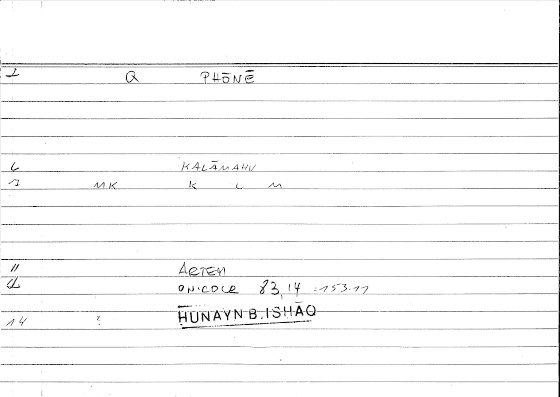 1 Q PHŌNĒ
6 KALĀMAHU
7 MK K L M
11 ARTEM
12 ONIROCR 83,14 :153.11
14 ? ḤUNAYN B. ISḤĀQ